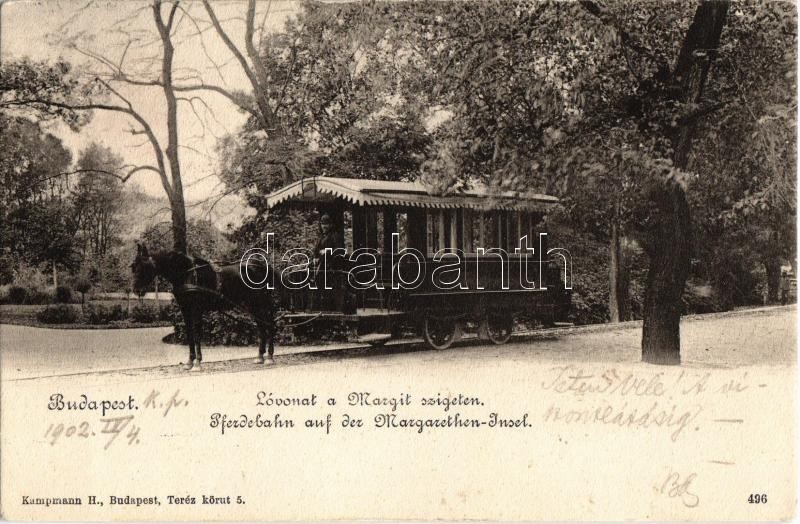 darabanth
Budapest. K. p.
1902. IV/4
Lóvonat a Margit szigeten.
Pferdebahn auf der Margarethen-Insel.
Isten Vele! A vi-
szontlátásig.
Kampmann H., Budapest, Teréz körut 5.
496